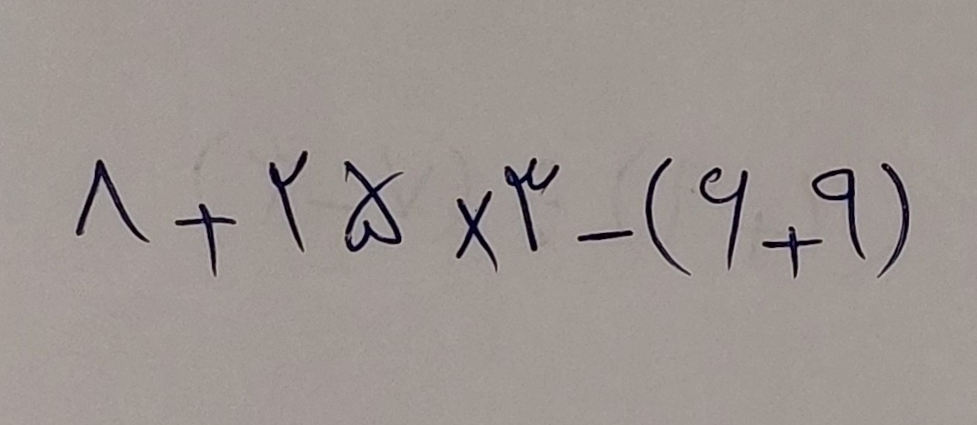 ۸ + ۲۵ × ۳ - (۶ + ۹)